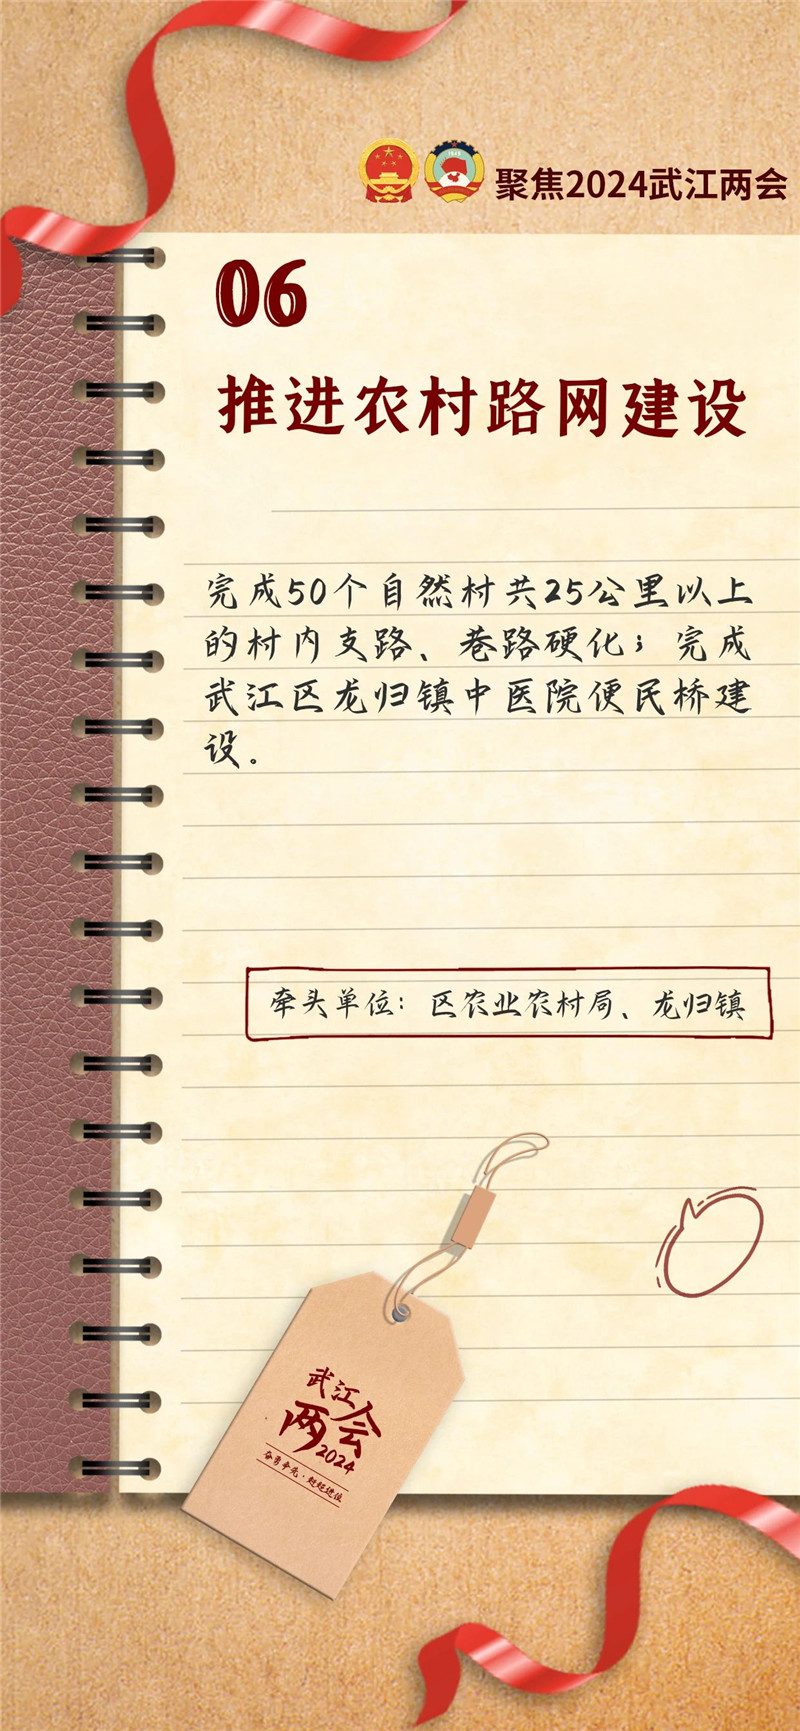 聚焦2024武江两会
06
推进农村路网建设
完成50个自然村共25公里以上
的村内支路、巷路硬化；完成
武江区龙归镇中医院便民桥建
设。
牵头单位：区农业农村局、龙归镇
武江
两会
2024
奋勇争先·赶超进位